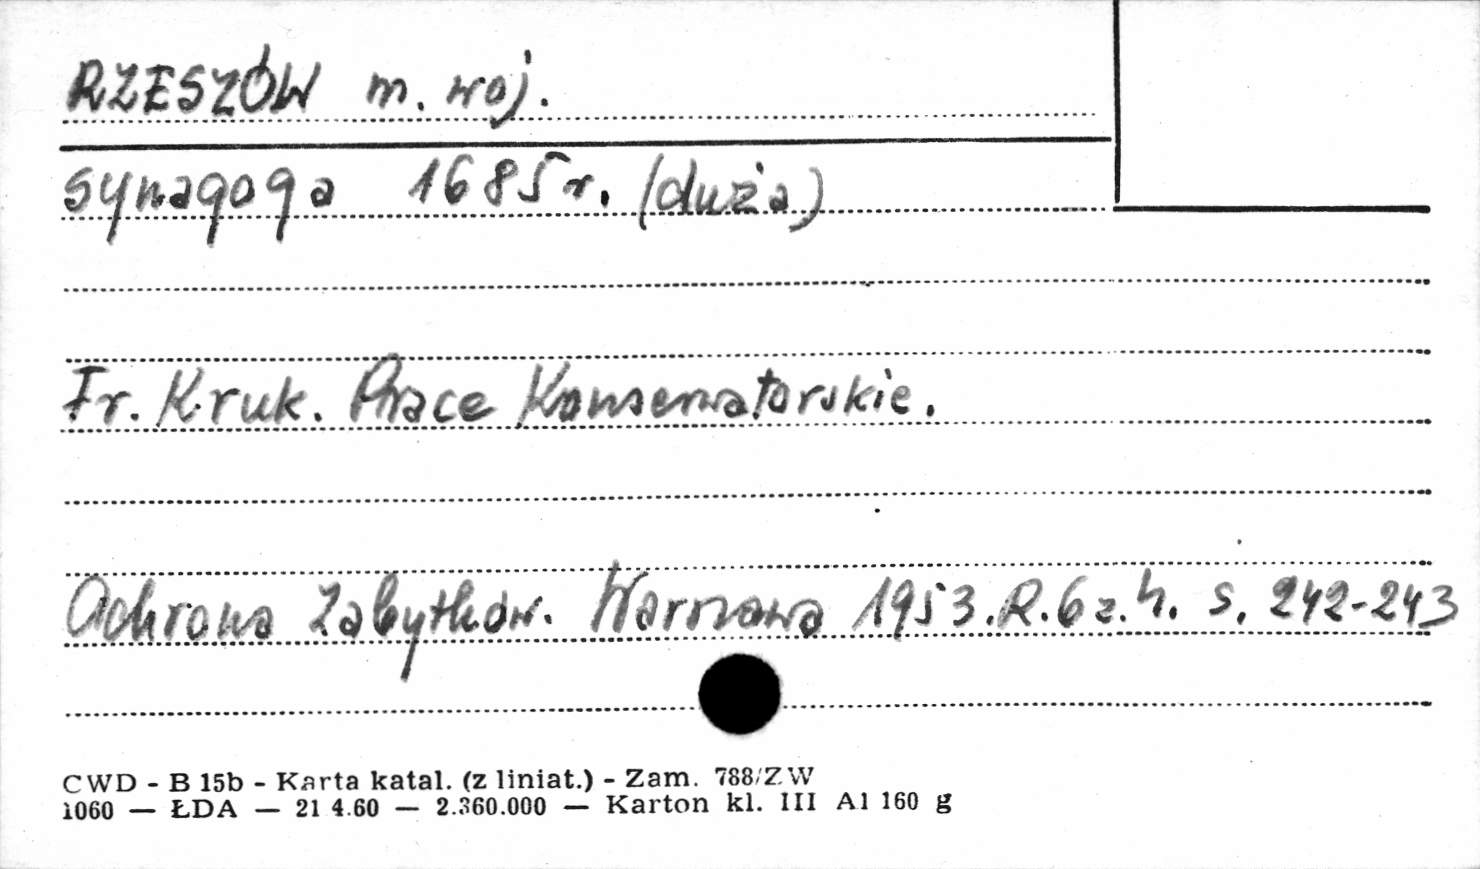 RZESZÓW m. woj.
synagoga 1685 r. (duża)
Fr. Kruk. Prace Konserwatorskie.
Ochrona Zabytków. Warszawa 1953. R. 6 z. 4. s. 242-243
CWD - B 15b - Karta katal. (z liniat.) - Zam. 788/ZW
1060 — ŁDA — 21 4.60 — 2.360.000 — Karton kl. III A1 160 g